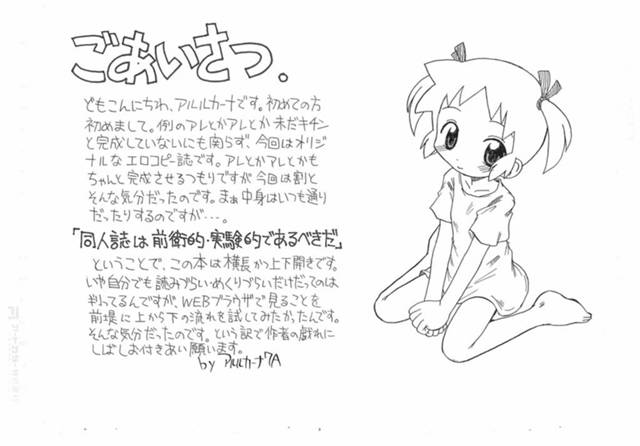 ごあいさつ.
ども こんにちわ、アルルカーナです。初めての方
初めまして。例のアレとかアレとか 未だキチン
と完成していないにも関らず、今回はオリジ
ナルな エロコピー誌です。アレとかアレとかも
ちゃんと 完成させるつもりですが 今回は割と
そんな気分だったのです。まぁ 中身はいつも通り
だったりするのですが…。
「同人誌は 前衛的・実験的であるべきだ」
ということで、この本は横長かつ上下開きです。
いや自分でも読みづらい・めくりづらいだけだってのは
判ってるんですが、WEBブラウザで見ることを
前提に上から下の流れを試してみたかったんです。
そんな気分だったのです。という訳で作者の戯れに
しばしお付きあい願います。
by アルルカーナ7A